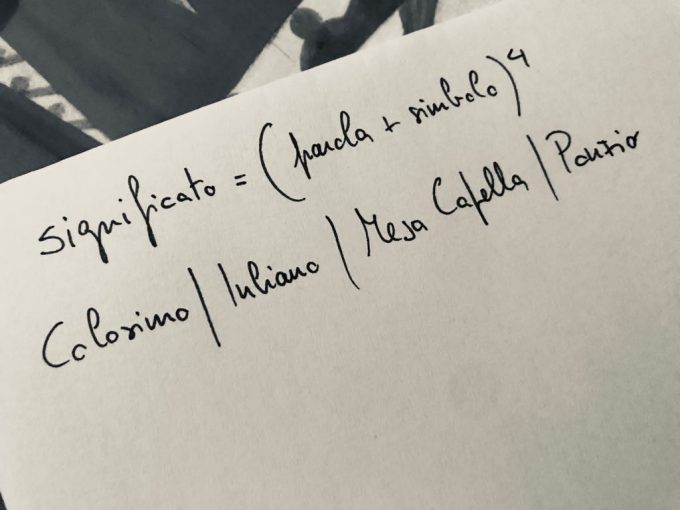 significato = (parola + simbolo)⁴
Colosimo | Iuliano | Mesa Capella | Ponzio